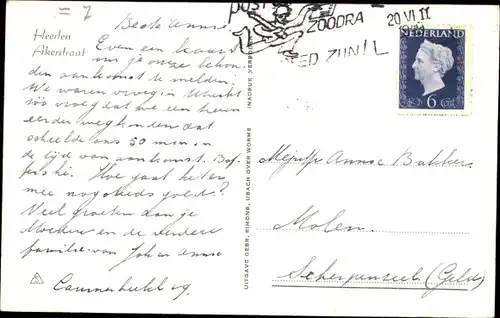 = 7
Heerlen
Akerstraat
Beste Annie
Even een kaart
om je onze behou
den aankomst te melden.
We waren vroeg in Utrecht
zoo vroeg dat we een trein
eerder weg konden dat
scheelde ons 50 min in
de tijd van aankomst.
Hoe gaat het er
mee nog steeds goed?
Veel groeten aan je
Moeder en de verdere
familie van Joh en Annie
UITGAVE GEBR. SIMONS, UBACH OVER WORMS
INADRUK VERB
post
ZOODRA
ED ZIJN!
20 VI 11
NEDERLAND
6 CENT
Mejuffr Annie Bakker
Molen
Scherpenzeel (Geld)